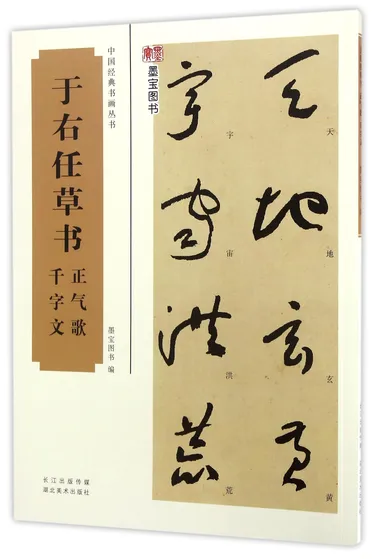 中国经典书画丛书
于右任草书
正气歌
千字文
墨宝图书 编
长江出版传媒
湖北美术出版社
墨宝图书
天地玄黄
天地玄黄
宇宙洪荒
宇宙洪荒